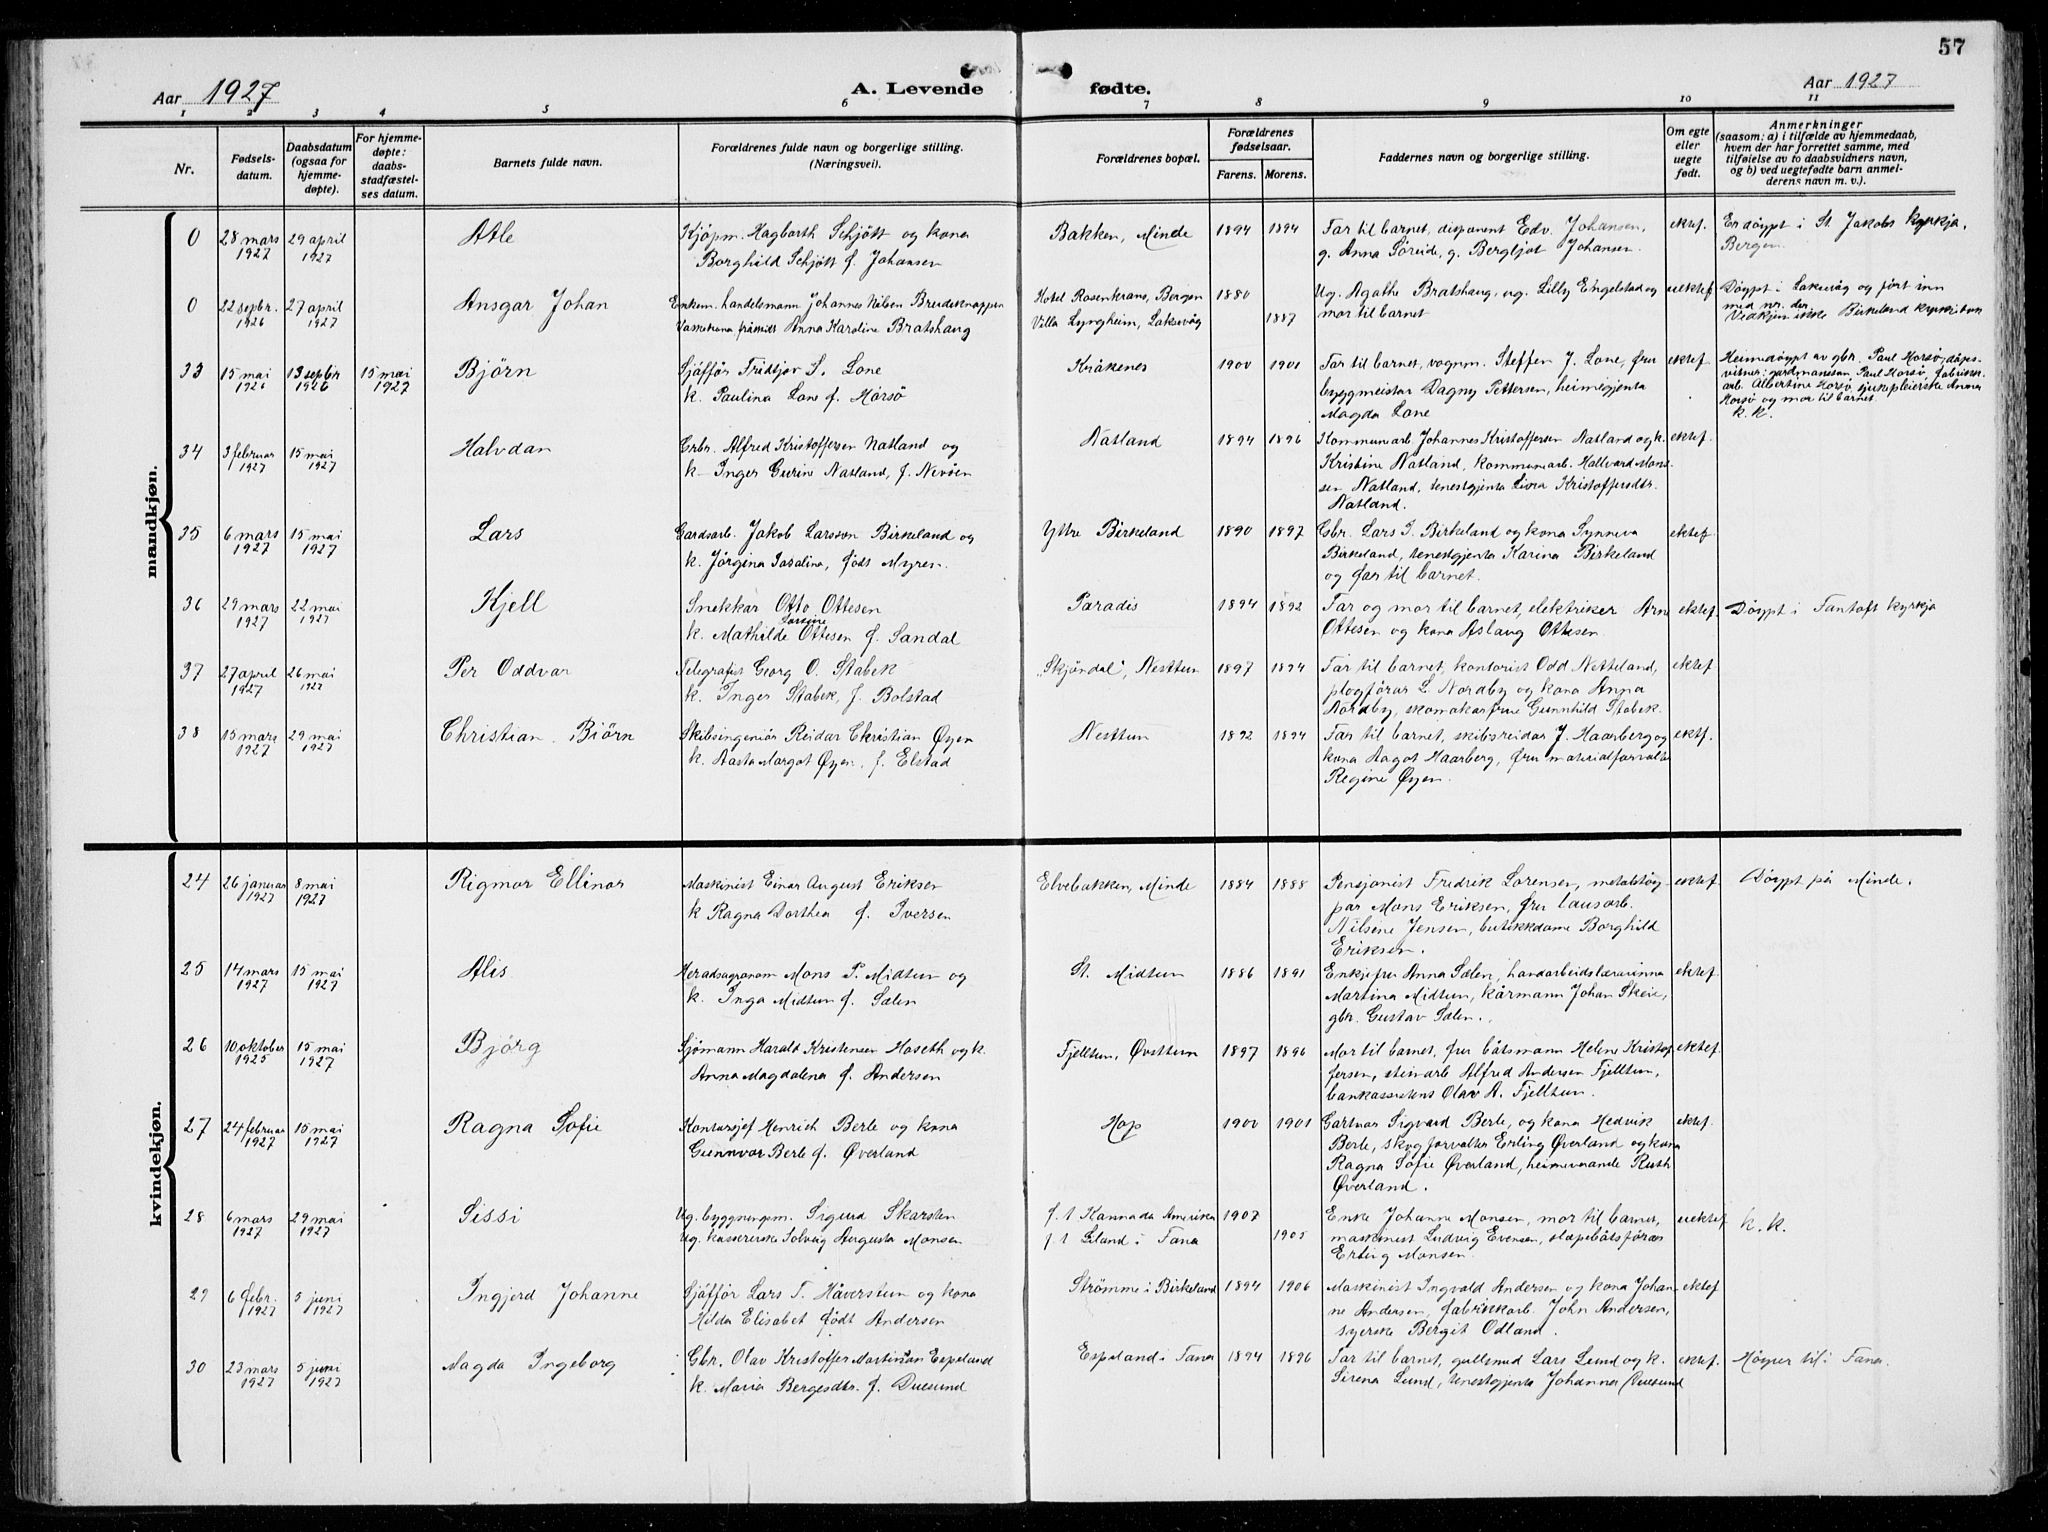 57
Aar 1927
A. Levende
fødte.
Aar 1927
1 2 3 4 5 6 7 8 9 10 11
Nr.
Fødsels-
datum.
Daabsdatum
(ogsaa for
hjemme-
døpte).
For hjemme-
døpte:
daabs-
stadfæstel-
ses datum.
Barnets fulde navn.
Forældrenes fulde navn og borgerlige stilling.
(Næringsvei).
Forældrenes bopæl.
Forældrenes
fødselsaar.
Farens. Morens.
Faddernes navn og borgerlige stilling.
Om egte
eller
uegte
født.
Anmerkninger
(saasom: a) i tilfælde av hjemmedaab,
hvem der har forrettet samme, med
tilføielse av to daabsvidners navn,
og b) ved uegtefødte barn anmel-
derens navn m. v.).
mandkjøn.
0 28 mars 29 april Atle Kjöpm. Hagbarth Schjött og kona Bakken, Minde 1894 1894 Far til barnet, disponent Edv. Johansen, ektef. Er döypt i St. Jakobs kyrkja,
1927 1927 Borghild Schjött f. Johansen g. Anna Söreide, g. Bergljot Johansen. Bergen.
0 22 septbr. 27 april Ansgar Johan Enkem. handelsmann Johannes Nilsen Breideknappen Hotel Rosenkrans, Bergen 1880 Ug. Agathe Bratshaug, ug. Lilly Engelstad og uektef. Döypt i Laksevåg og fört inn
1926 1927 Anna Karoline Bratshaug Villa Lyngheim, Laksevåg 1887 mor til barnet med nr. der
Birkeland
33 15 mai 13 septbr 15 mai Björn Sjåfför Fridtjov S. Lone Kråkenes 1900 1901 Far til barnet, vognm. Steffen J. Lone, fru ektef. Heimedöypt av gbr. Paul Horsö, döps-
1926 1926 1927 k. Paulina Lone f. Horsö byggmeister Dagny Pettersen, heimegjenta vitner: gardmannsen. Paul Horsö, fabrikk-
Magda Lone arb. Albertine Horsö, sjukepleierske Anna
Horsö og mor til barnet.
k. k.
34 3 februar 15 mai Halvdan Grbr. Alfred Kristoffersen Natland og Natland 1894 1896 Kommunearb. Johannes Kristoffersen Natland og k. ektef.
1927 1927 k. Inger Gurine Natland, f. Nevöen Kristine Natland, kommunearb. Hallvard Mons-
sen Natland, tenestgjenta Livra Kristoffersdtr.
Natland.
35 6 mars 15 mai Lars Gardsarb. Jakob Larsson Birkeland og Yttre Birkeland 1890 1897 Gbr. Lars J. Birkeland og kona Synneva ektef.
1927 1927 k. Jörgina Josalina, födt Myren. Birkeland, tenestgjenta Karina Birkeland
og far til barnet.
36 29 mars 22 mai Kjell Snekkar Otto Ottesen Paradis 1894 1892 Far og mor til barnet, elektriker Arne ektef. Döypt i Fantoft kyrkja
1927 1927 k. Mathilde Ottesen f. Sandal Ottesen og kona Aslaug Ottesen.
37 27 april 26 mai Per Oddvar Telegrafist Georg O. Stabek „Skjöndal“, Nesttun 1897 1894 Far til barnet, kontorist Odd Netteland, ektef.
1927 1927 k. Inger Stabek, f. Bolstad plogförar L. Nordby og kona Anna
Nordby, skomakarfrue Gunnhild Stabek.
38 15 mars 29 mai Christian Björn Skibsingeniör Reidar Christian Øyen Nesttun 1892 1894 Far til barnet, skibsreidar J. Haarberg og ektf.
1927 1927 k. Aasta Margot Øyen, f. Elstad kona Aagot Haarberg, fru materialforvalter
Regine Øyen.
kvindekjøn.
24 26 januar 8 mai Rigmor Ellinor Maskinist Einar August Eriksen Elvebakken, Minde 1884 1888 Pensjonist Fredrik Lorensen, metalstöy- ektef. Döypt på Minde.
1927 1927 k Ragna Dorthea f. Iversen par Mons Eriksen, fru lausarb.
Nilsine Jensen, butikkdame Borghild
Eriksen.
25 14 mars 15 mai Alis Heradsagronom Mons P. Midtun og St. Midtun 1886 1891 Enkjefru Anna Sælen, handarbeidslærarinna ektef.
1927 1927 k. Inga Midtun f. Sælen Martina Midtun, kårmann Johan Skeie,
gbr. Gustav Sælen.
26 10 oktober 15 mai Björg Sjömann Harald Kristensen Haseth og k. Fjelltun, Øvsttun 1897 1896 Mor til barnet, fru båtsmann Helene Kristof ektef.
1925 1927 Anna Magdalena f. Andersen fersen, steinarb Alfred Andersen Fjelltun,
bankassistent Olav A. Fjelltun.
27 24 februar 15 mai Ragna Sofie Kontorsjef Henrich Berle og kona Hop 1900 1901 Gartnar Sigvard Berle, og kona Hedvik ektef.
1927 1927 Gunnvor Berle f. Øverland Berle, skogforvalter Erling Øverland og kona
Ragna Sofie Øverland, heimeverande Ruth
Øverland.
28 6 mars 29 mai Sissi Ug. byggningsm. Sigurd Skarsten f. t Kannada Amerika 1907 Enke Johanne Monsen, mor til barnet, uektef k. k.
1927 1927 Ug. kassererske Solveig Augusta Monsen f. t Liland i Fana 1905 maskinist Ludvig Evensen, slæpebåtsförar
Erling Monsen.
29 6 febr. 5 juni Ingjerd Johanne Sjåfför Lars T. Håverstun og kona Strömme i Birkeland 1894 1906 Maskinist Ingvald Andersen og kona Johan- ektef
1927 1927 Hilda Elisabet födt Andersen ne Andersen, fabrikkarb. John Andersen,
syerske Bergit Odland.
30 23 mars 5 juni Magda Ingeborg Gbr. Olav Kristoffer Martinson Espeland Espeland i Fana 1894 1896 Far til barnet, gullsmed Lars Lund og k. ektef. Höyrer til i Fana.
1927 1927 k. Maria Bergesdtr. f. Duesund Sirena Lund, tenestgjenta Johanna Duesund